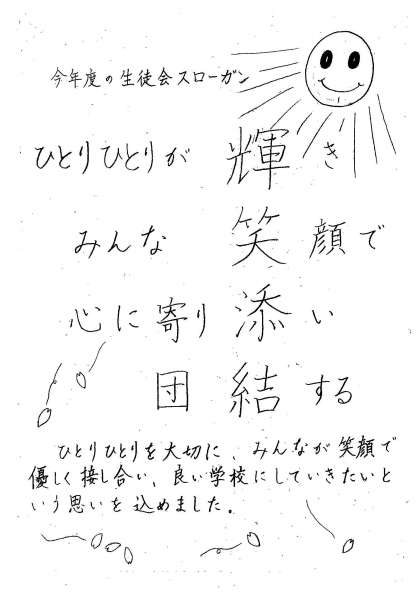 今年度の生徒会スローガン
ひとりひとりが 輝き
みんな 笑顔で
心に寄り添い
団結する
ひとりひとりを大切に、みんなが笑顔で
優しく接し合い、良い学校にしていきたいと
いう思いを込めました。